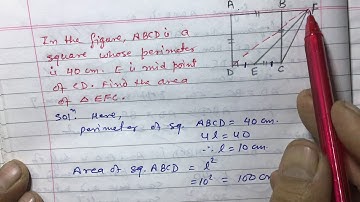 In the figure, ABCD is a
square whose perimeter
is 40 cm. E is mid point
of CD. Find the area
of △ EFC.
Solⁿ: Here,
perimeter of sq. ABCD = 40 cm.
4l = 40
∴ l = 10 cm
Area of sq. ABCD = l²
= 10² = 100 cm
A B F
D E C